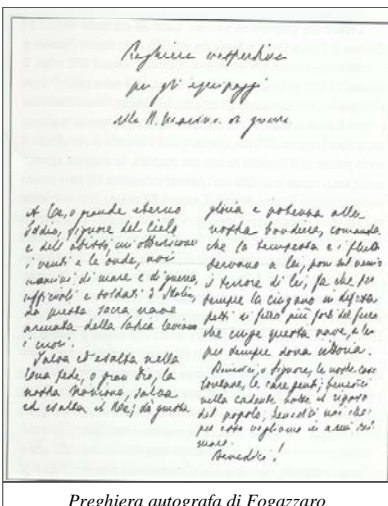 Preghiera vespertina
per gli equipaggi
della R. Marina da guerra
A Te, o grande eterno
Iddio, Signore del cielo
e dell'abisso, cui obbediscono
i venti e le onde, noi
uomini di mare e di guerra,
uffiziali e soldati d'Italia,
da questa sacra nave
armata della Patria leviamo
i cuori.
Salva ed esalta nella
Tua fede, o gran Dio, la
nostra Nazione, salva
ed esalta il Re; dà giusta
gloria e potenza alla
nostra bandiera, comanda
che la tempesta e i flutti
servano a lei; poni sul nemico
il terrore di lei; fa che per
sempre la cingano in difesa
petti di ferro più forti del ferro
che cinge questa nave, a lei
per sempre dona vittoria.
Benedici, o Signore, le nostre case
lontane, le care genti; benedici
nella cadente notte il riposo
del popolo, benedici noi che
per esso vegliamo in armi sul
mare.
Benedici!
Preghiera autografa di Fogazzaro